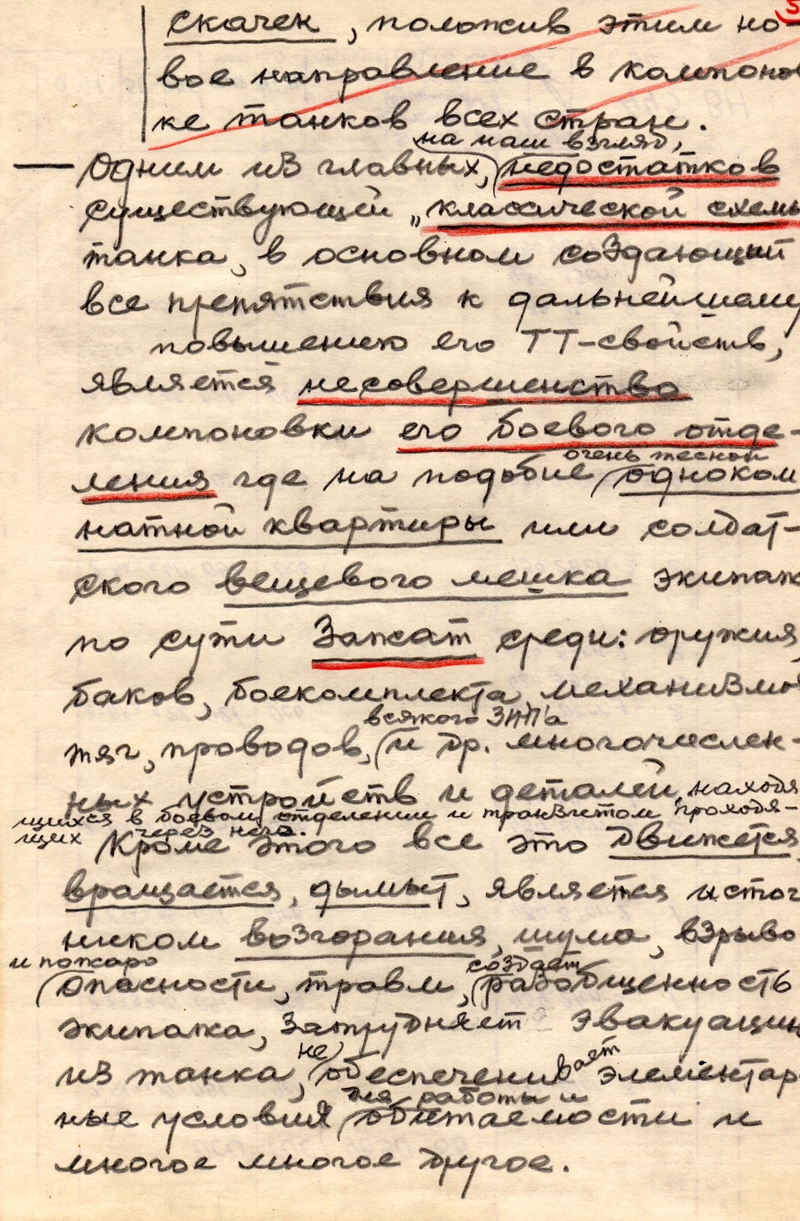 5
скачек, положив этим но-
вое направление в компонов
ке танков всех стран.
на наш взгляд,
— Одним из главных, недостатков
существующей „классической схемы
танка, в основном создающий
все препятствия к дальнейшему
повышению его ТТ-свойств,
является несовершенство
компоновки его боевого отде-
очень тесной
ления где на подобие одноком
натной квартиры или солдат-
ского вещевого мешка экипаж
по сути Зажат среди: оружия,
баков, боекомплекта, механизмов
всякого ЗИП'а
тяг, проводов, и др. многочислен-
ных устройств и деталей, находя
щихся в боевом отделении и транзитом проходя-
щих через него.
Кроме этого все это движется,
вращается, дымит, является источ
ником возгорания, шума, взрыво
и пожаро создает
опасности, травм, разобщенность
экипажа, Затрудняет эвакуацию
не
из танка, обеспечени вает элементар-
для работы и
ные условия обитаемости и
многое многое другое.